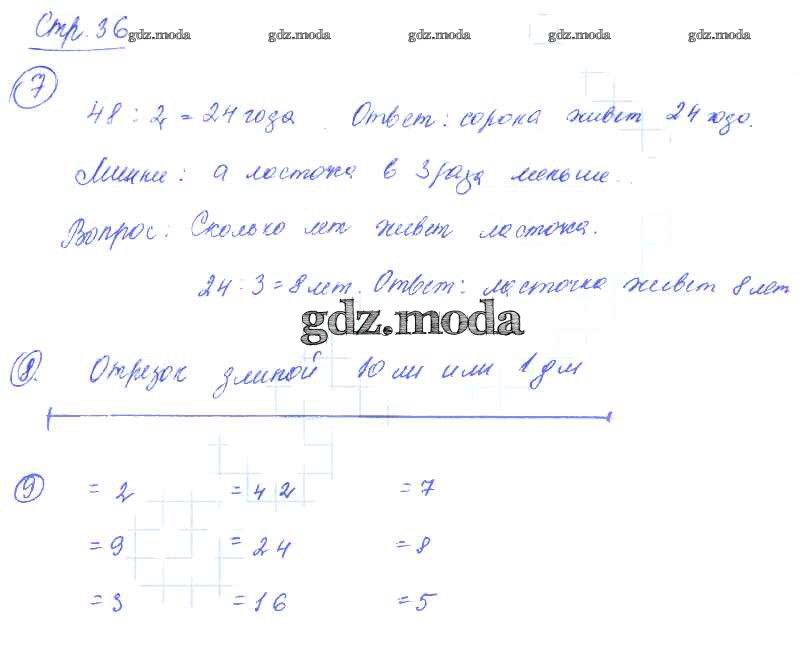 Стр. 36
gdz.moda gdz.moda gdz.moda gdz.moda gdz.moda
7
48 : 2 = 24 года. Ответ: сорока живет 24 года.
а ласточка в 3 раза меньше.
Вопрос: Сколько лет живет ласточка.
24 : 3 = 8 лет. Ответ: ласточка живет 8 лет
gdz.moda
8. Отрезок длиной 10 см или 1 дм
9 = 2 = 42 = 7
= 9 = 24 = 8
= 3 = 16 = 5